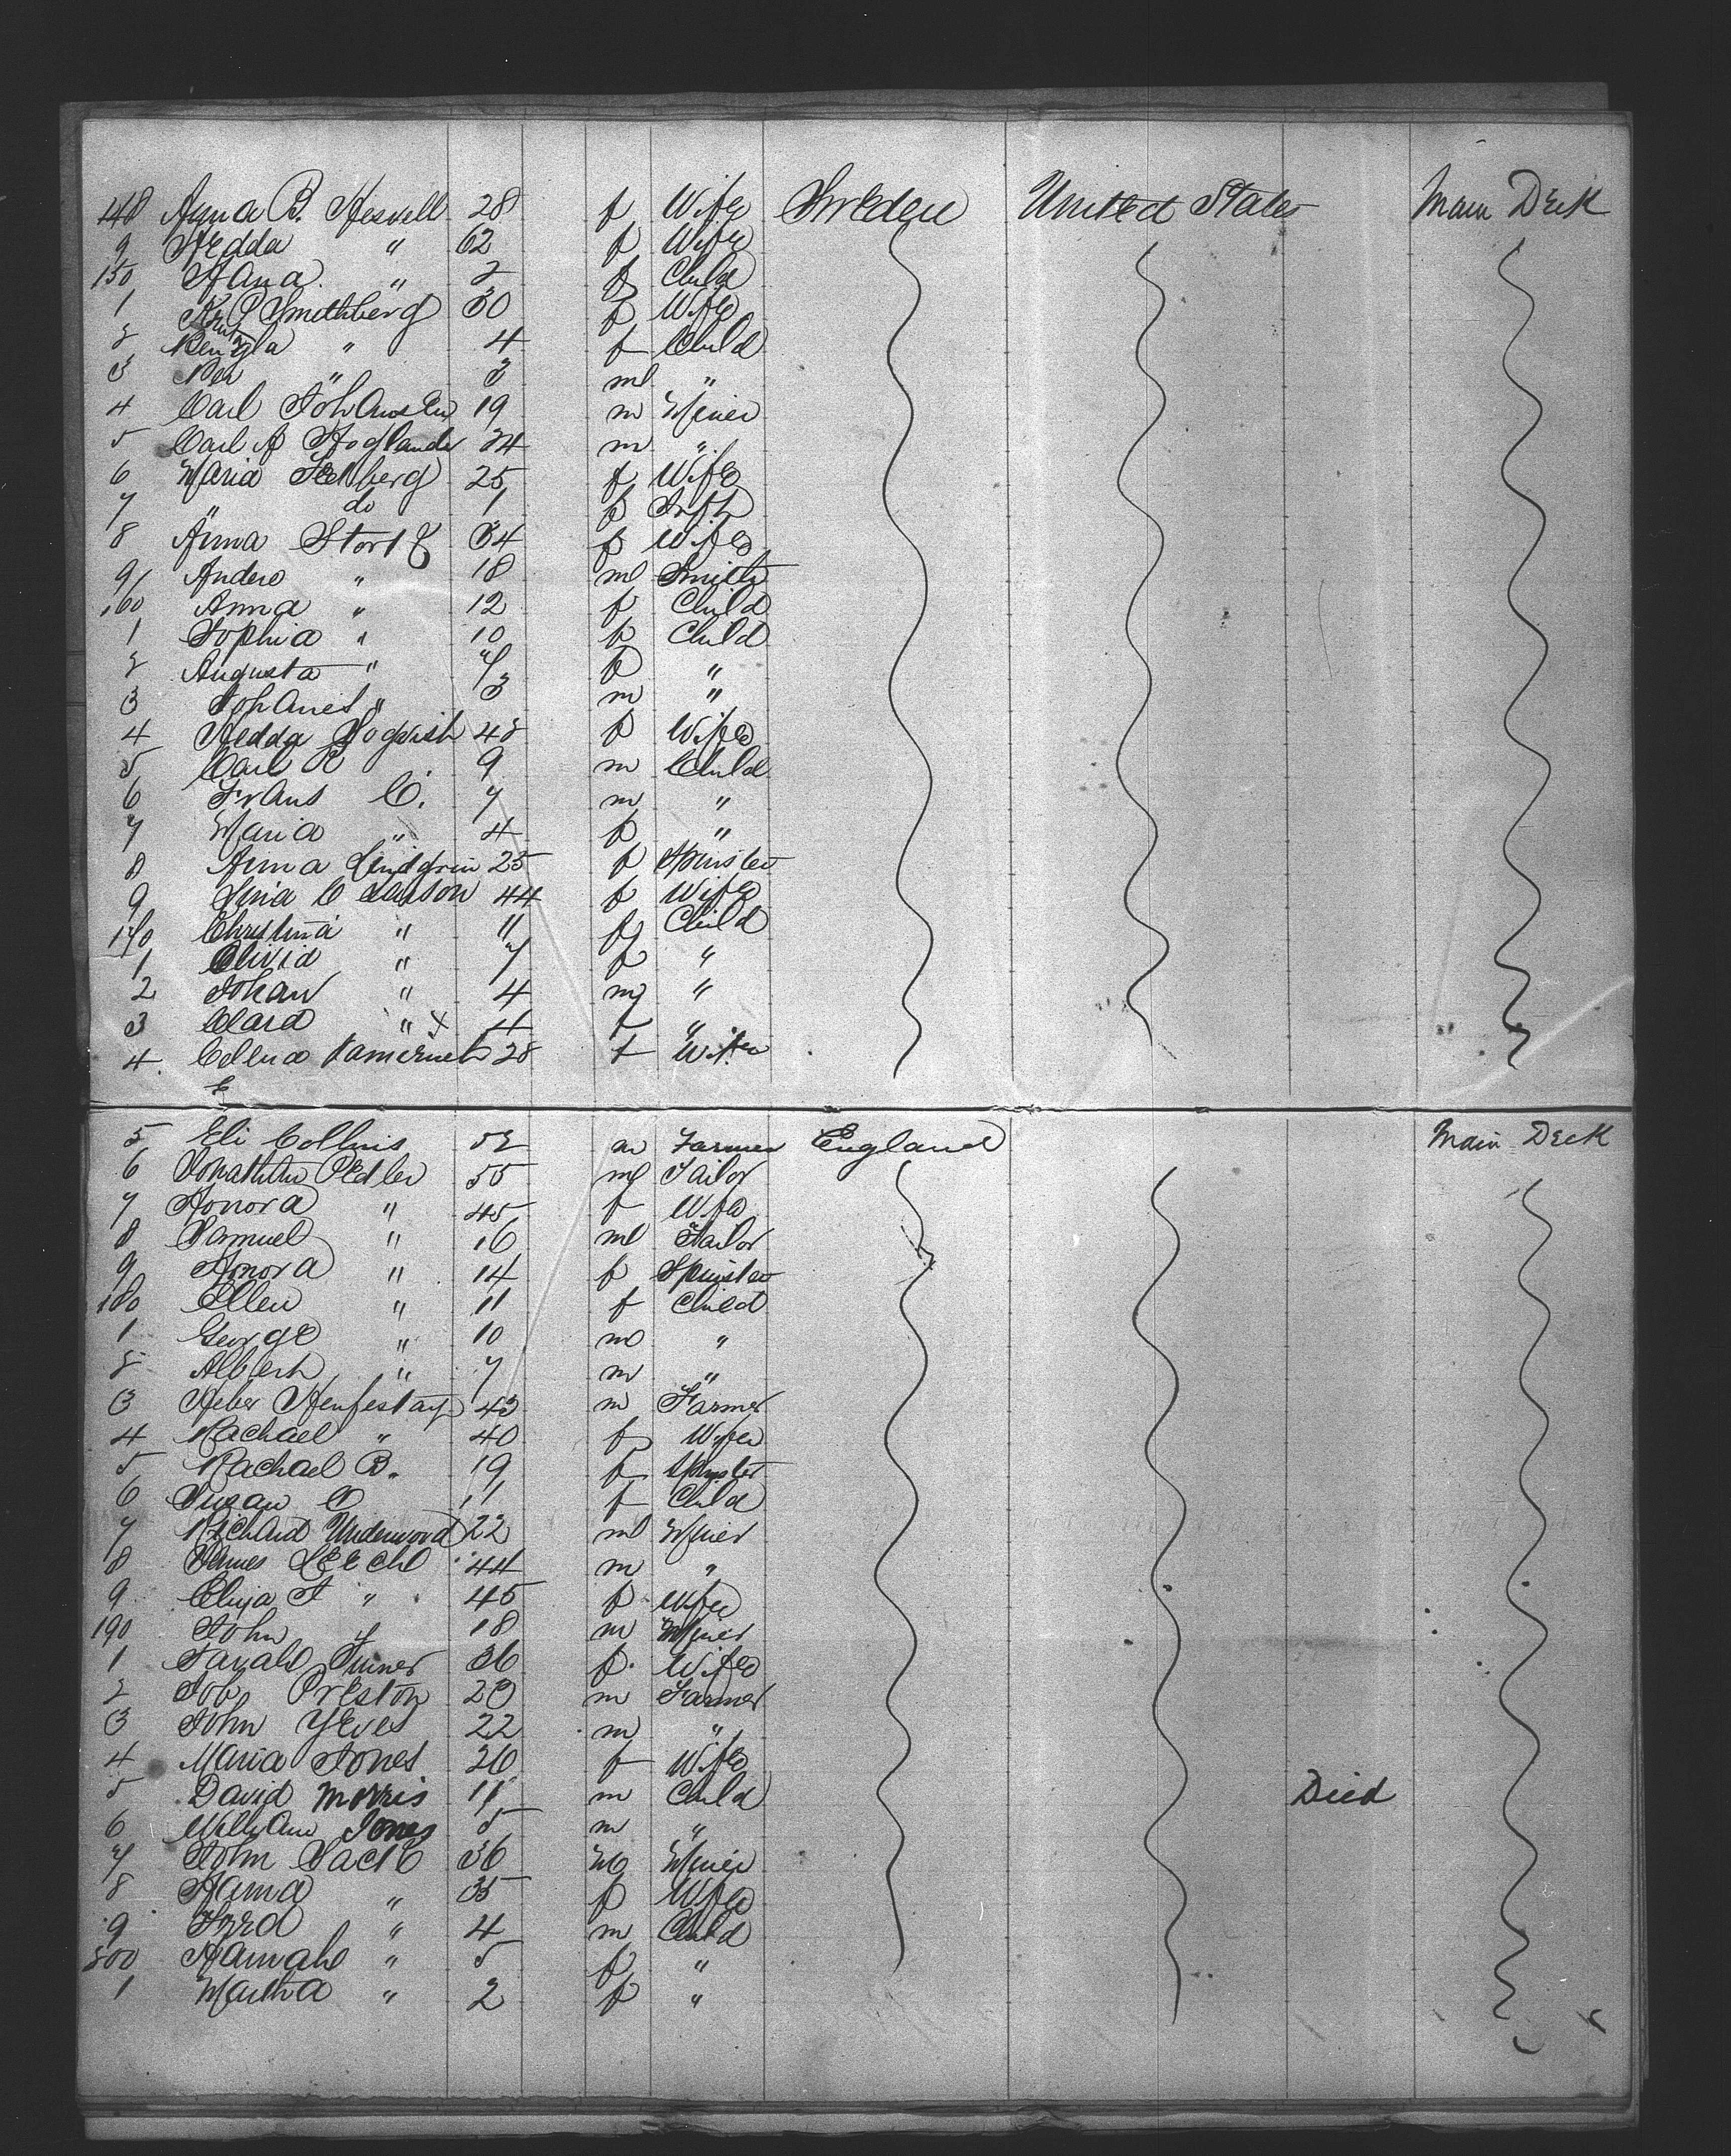 148 Anna B. Hesvell 28 f Wife Sweden United States Main Deck
9 Hedda " 62 f Wife
150 Hana " 2 f Child
1 P Smethberg 30 f Wife
2 Bengta " 4 f Child
3 Per " 3 m "
4 Carl Johansen 19 m Miner
5 Carl A Hoglander 24 m "
6 Maria berg 25 f Wife
7 " do 1 f Inft
8 Anna Stork 34 f Wife
9 Anders " 18 m Smith
160 Anna " 12 f Child
1 Sophia " 10 f Child
2 Augusta " 7 f "
3 Johanes " 3 m "
4 Hedda 48 f Wife
5 Carl R 9 m Child
6 Frans C. 7 m "
7 Maria " 4 f "
8 Anna Lindgrin 25 f Spinster
9 C Larson 44 f Wife
170 Christina " 11 f Child
1 " 7 f "
2 Johan " 4 m "
3 Clara " x 4 f "
4 28 f Wife
5 Eli Collins 52 m Farmer England Main Deck
6 Jonathan Pedler 55 m Tailor
7 Honora " 45 f Wife
8 Samuel " 16 m Tailor
9 Honora " 14 f Spinster
180 Ellen " 11 f Child
1 George " 10 m "
2 Albert " 7 m "
3 Heber 43 m Farmer
4 Rachael " 40 f Wife
5 Rachael B. 19 f Spinster
6 Susan 11 f Child
7 Richard Underwood 22 m Miner
8 James Leech 44 m "
9 Eliza " 45 f Wife
190 John " 18 m Miner
1 Sarah Turner 36 f Wife
2 Job Preston 20 m Farmer
3 John Yeves 22 m "
4 Maria Jones 26 f Wife
5 David Morris 11 m Child Died
6 William Jones 5 m "
7 John 36 m Miner
8 " 35 f Wife
9 " 4 m Child
200 Hannah " 5 f "
1 Martha " 2 f "